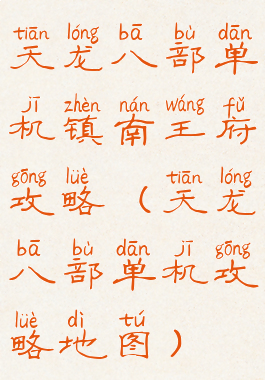 tiān lóng bā bù dān
天龙八部单
jī zhèn nán wáng fǔ
机镇南王府
gōng lüè tiān lóng
攻略（天龙
bā bù dān jī gōng
八部单机攻
lüè dì tú
略地图）